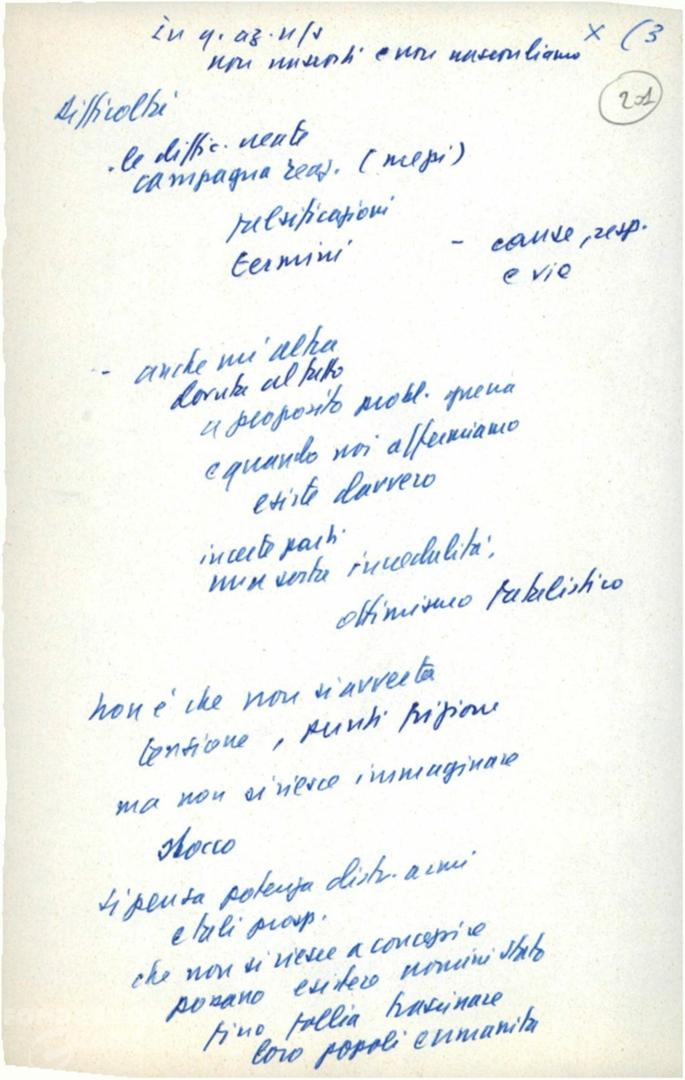 in q. az. n/s
non nascosti e non nascondiamo
× (3
201
Difficoltà
. le diffic. reate
campagna reaz. (mezzi)
falsificazioni
termini
- cause, resp.
e vie
- anche un'altra
dovuta al fatto
a proposito probl. guerra
e quando noi affermiamo
esiste davvero
in certe parti
una sorta incredulità,
ottimismo fatalistico
non è che non si avverta
tensione, punti frizione
ma non si riesce immaginare
sbocco
si pensa potenza distr. armi
e tali prosp.
che non si riesce a concepire
possano esistere uomini stato
fino follia trascinare
loro popoli e umanità